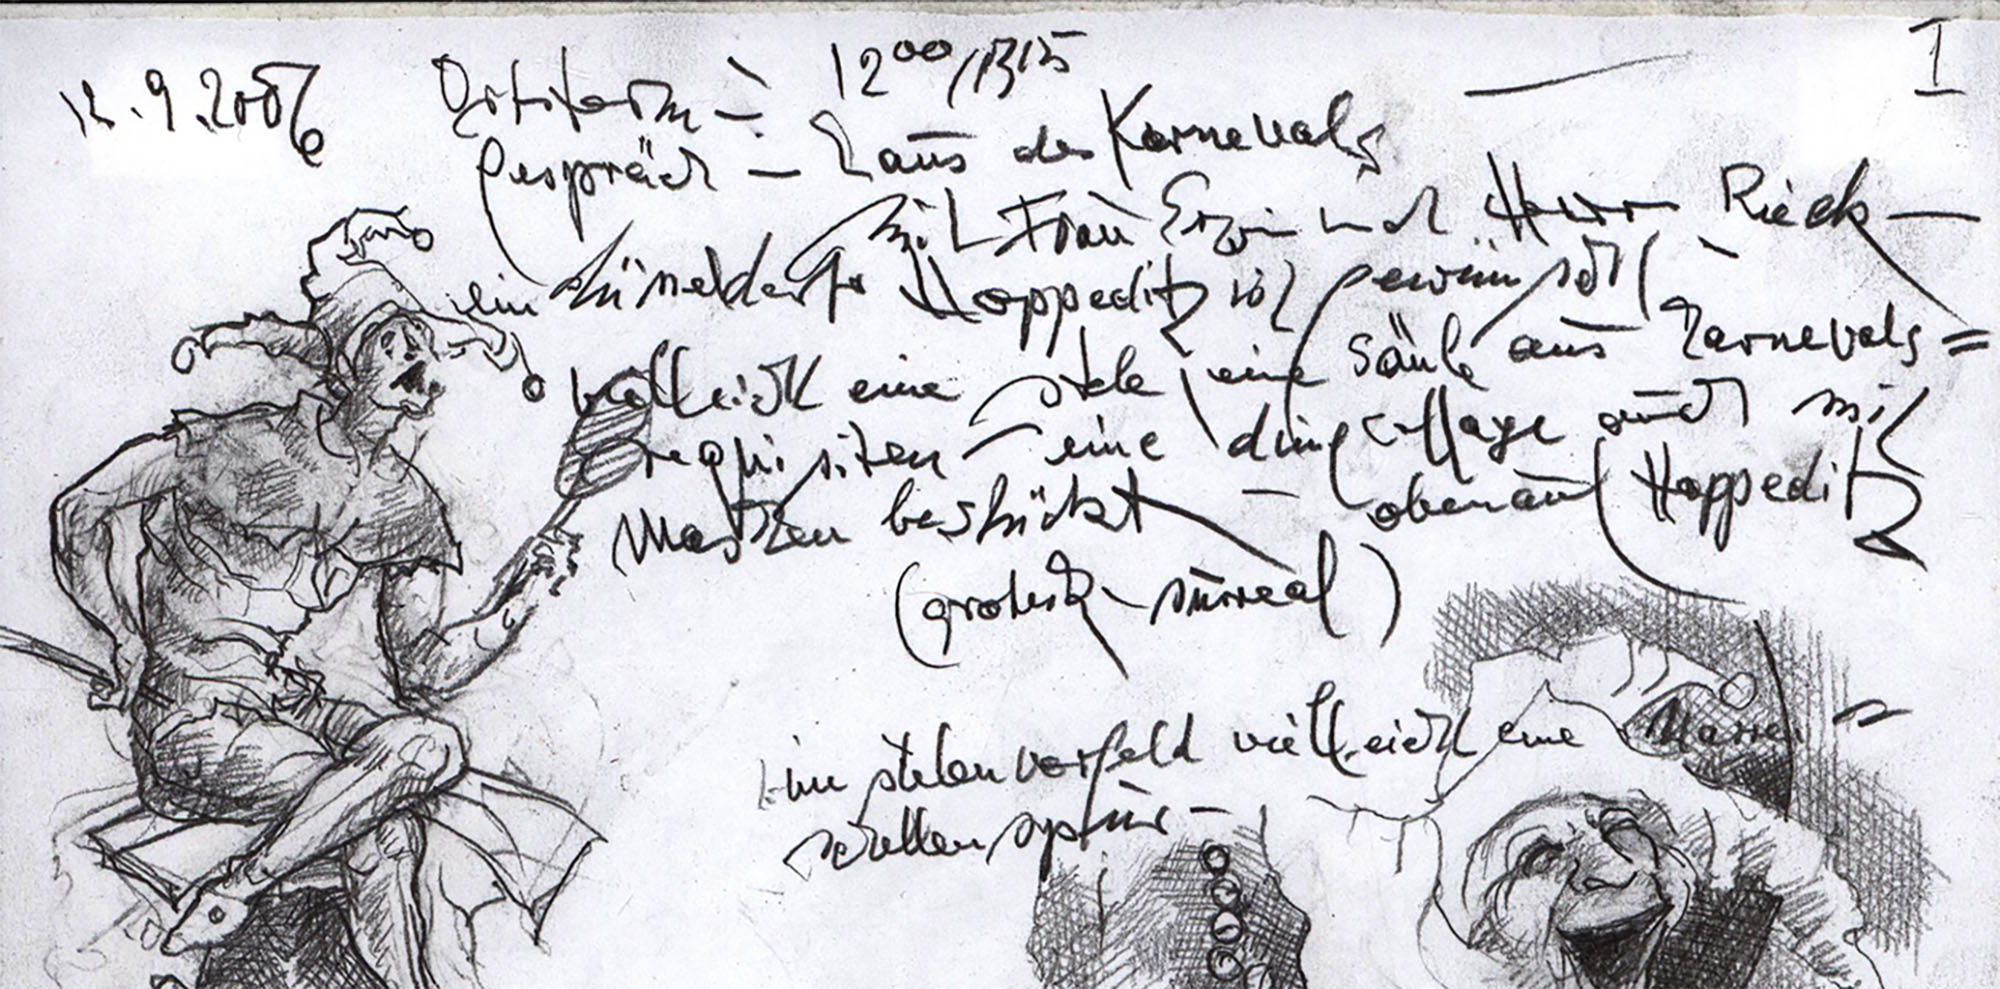 12.9.2006 Ortstermin – 12⁰⁰/13¹⁵ I
Gespräch – Haus des Karnevals
mit Frau und Herrn Rieck –
ein Düsseldorfer Hoppeditz ist gewünscht –
vielleicht eine Stele, eine Säule aus Karnevals=
requisiten – eine dingcollage auch mit
Masken bestückt – obenauf Hoppeditz
(grotesk – surreal)
im stelenvorfeld vielleicht eine Narren =
schellenspur –